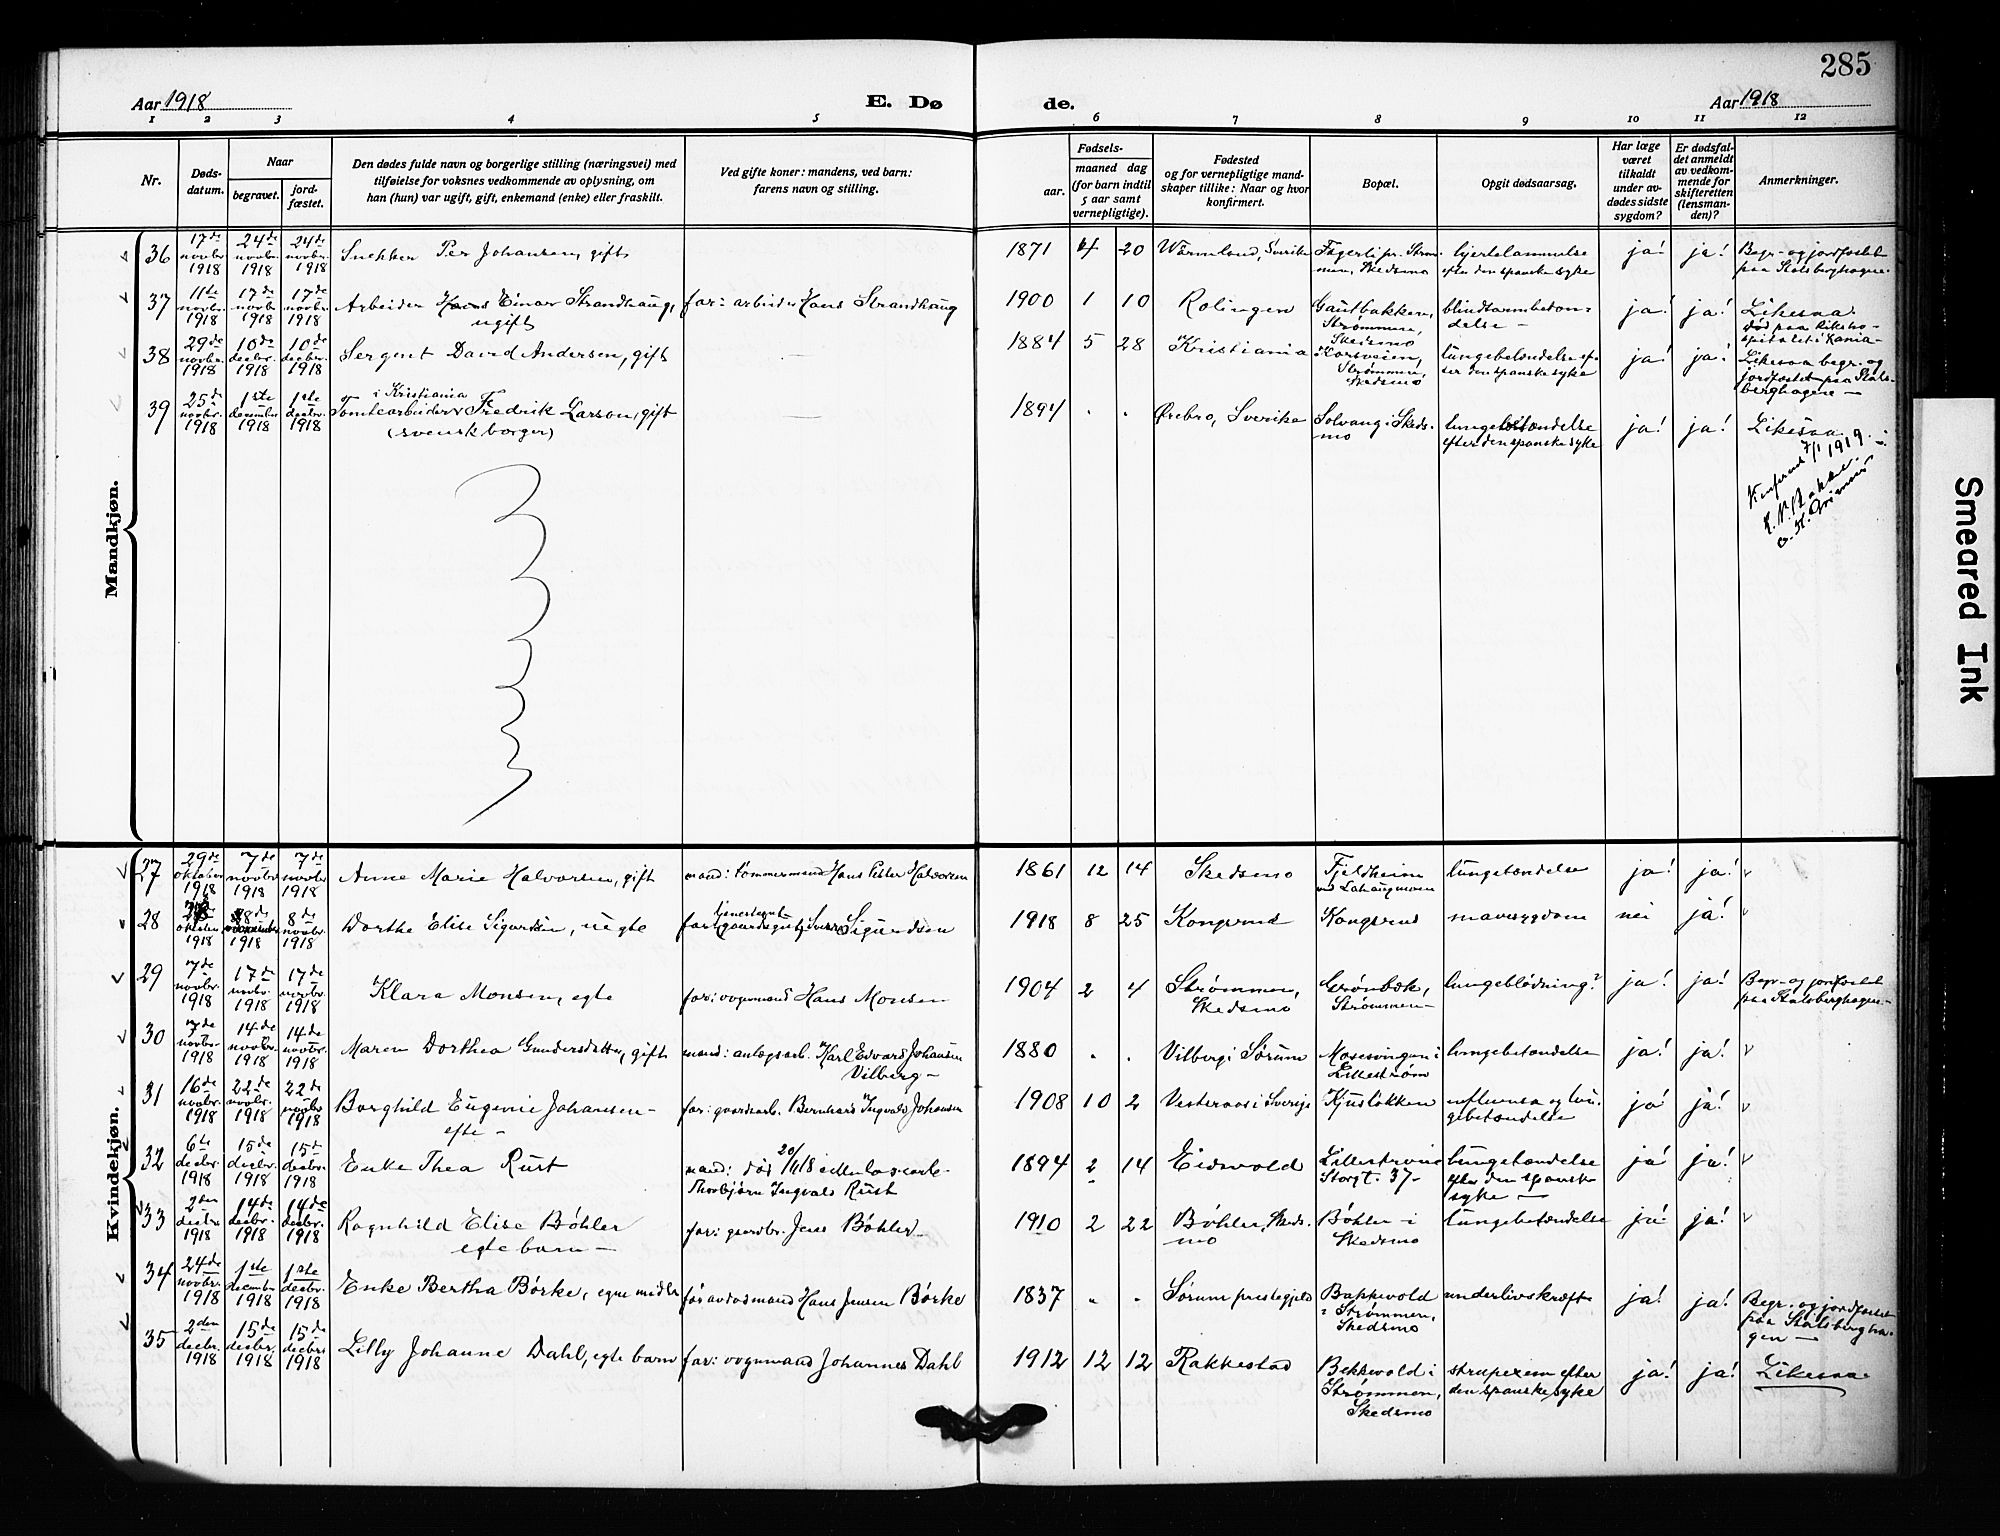 285
Aar 1918
E. Dø
de.
Aar 1918
1 2 3 4 5 6 7 8 9 10 11 12
Nr.
Døds-
datum.
Naar
begravet.
jord-
fæstet.
Den dødes fulde navn og borgerlige stilling (næringsvei) med
tilføielse for voksnes vedkommende av oplysning, om
han (hun) var ugift, gift, enkemand (enke) eller fraskilt.
Ved gifte koner: mandens, ved barn:
farens navn og stilling.
Fødsels-
aar.
maaned dag
(for barn indtil
5 aar samt
vernepligtige).
Fødested
og for vernepligtige mand-
skaper tillike: Naar og hvor
konfirmert.
Bopæl.
Opgit dødsaarsag.
Har læge
været
tilkaldt
under av-
dødes sidste
sygdom?
Er dødsfal-
det anmeldt
av vedkom-
mende for
skifteretten
(lensman-
den)?
Anmerkninger.
Mandkjøn.
36
17de
novbr.
1918
24de
novbr.
1918
24de
novbr.
1918
Snekker Per Johansen, gift
1871 4 20
Wärmland, Sverike
Fagerli pr. Strøm-
men, Skedsmo
hjertelammelse
efter den spanske syke
ja! ja!
Begr- og jordfæstet
paa Stalsberghagen.
37
11te
novbr.
1918
17de
novbr.
1918
17de
novbr.
1918
Arbeider Hans Einar Strandhaug,
ugift
far: arbeider Hans Strandhaug
1900 1 10
Rolingen
Gautbakken,
Strømmen,
Skedsmo
blindtarmbeton-
delse
ja! ja!
Likesaa.
38
29de
novbr.
1918
10de
decbr.
1918
10de
decbr.
1918
Sergent David Andersen, gift
1884 5 28
Kristiania
Korsveien,
Strømmen,
Skedsmo
lungebetændelse ef-
ter den spanske syke
ja! ja!
Død paa Riksho-
spitalet i Kania-
Likesaa begr. og
jordfæstet paa Stals-
berghagen
39
25de
novbr.
1918
1ste
december
1918
1ste
decbr.
1918
i Kristiania
Tomtearbeider Fredrik Larson, gift
(svensk borger)
1894 " "
Ørebro, Sverike
Solvang i Skeds-
mo
lungebetændelse
efter den spanske syke
ja! ja!
Likesaa
7/1 1919.
Kvindekjøn.
27
29de
oktober
1918
7de
novbr.
1918
7de
novbr.
1918
Anne Marie Halvorsen, gift
mand: tømmermand Hans Peter Halvorsen
1861 12 14
Skedsmo
Fjeldheim
ved Lahaugmoen
lungetændelse
ja! ja! "
28
oktober
1918
8de
november
1918
8de
novbr.
1918
Dorthe Elise Sigurdsen, uegte
tjenestegut
far: (gaardsgut) Sverre Sigurdsen
1918 8 25
Kongsrud
Kongsrud
mavesygdom
nei ja! "
29
7de
novbr.
1918
17de
novbr.
1918
17de
novbr.
1918
Klara Monsen, egte
far: vognmand Hans Monsen
1904 2 4
Strømmen,
Skedsmo
Grønbæk,
Strømmen
lungeblødning?
ja! ja!
Begr- og jordfæstet
paa Stalsberghagen
30
7de
novbr.
1918
14de
novbr.
1918
14de
novbr.
1918
Maren Dorthea Gundersdatter, gift
mand: anlægsarb. Karl Edvard Johansen
Vilberg
1880 " "
Vilberg i Sørum
Mosesvingen i
Lillestrøm
lungebetændelse
ja! ja! "
31
16de
novbr.
1918
22de
novbr.
1918
22de
novbr.
1918
Borghild Eugenie Johansen
egte
far: gaardsarb. Bernhard Ingvald Johansen
1908 10 2
Vesteraas i Sverige
Kjusløkken
influensa og lun-
gebetændelse
ja! ja! "
32
6te
decbr.
1918
15de
decbr.
1918
15de
decbr.
1918
Enke Thea Rust
mand: død 20/11 18 cellulosearb.
Thorbjørn Ingvald Rust
1894 2 14
Eidsvold
Lillestrøm
Storgt. 37
lungetændelse
efter den spanske
syke
ja! ja! "
33
2den
decbr.
1918
14de
decbr.
1918
14de
decbr.
1918
Ragnhild Elise Bøhler
egte barn
far: gaardbr. Jens Bøhler
1910 2 22
Bøhler, Skeds-
mo
Bøhler i
Skedsmo
lungebetændelse
ja! ja! "
34
24de
novbr.
1918
1ste
december
1918
1ste
decbr.
1918
Enke Bertha Børke, egne midler
før avdøsmand Hans Jensen Børke
1837 " "
Sørum prestegjeld
Bakkevold
i Strømmen,
Skedsmo
underlivskræft
ja! ja!
Begr. og jordfæstet
paa Stalsbergha-
gen
35
2den
decbr.
1918
15de
decbr.
1918
15de
decbr.
1918
Lilly Johanne Dahl, egte barn
far: vognmand Johannes Dahl
1912 12 12
Rakkestad
Bekkevold i
Strømmen,
Skedsmo
strupexem efter
den spanske syke
ja! ja!
Likesaa
Smeared Ink